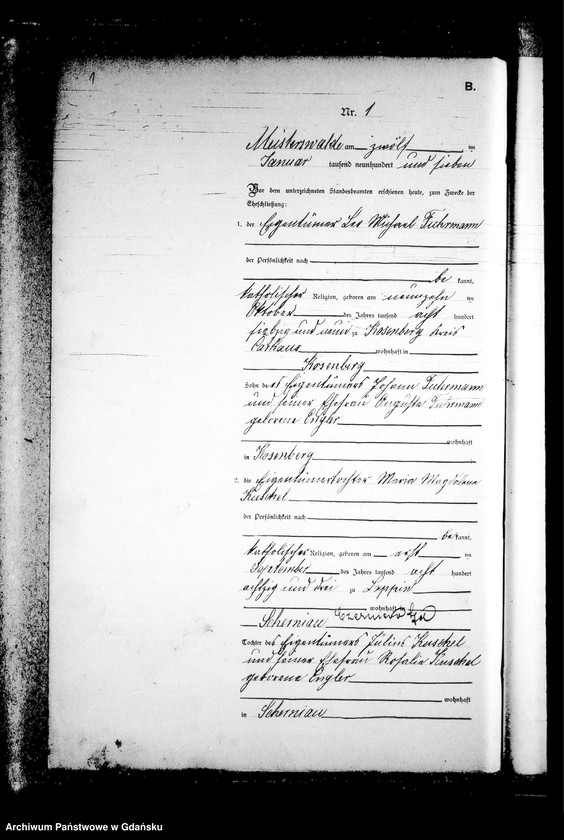 1
B.
Nr. 1
Meisterswalde am zwölf ten
Januar tausend neunhundert und sieben
Vor dem unterzeichneten Standesbeamten erschienen heute, zum Zwecke der
Eheschließung:
1. der Eigentümer Leo Michael Fuhrmann
der Persönlichkeit nach
be kannt,
katholischer Religion, geboren am neunzehn ten
Oktober des Jahres tausend acht hundert
siebzig und neun zu Rosenberg Kreis
Carthaus wohnhaft in
Rosenberg
Sohn des Eigentümers Johann Fuhrmann
und seiner Ehefrau Auguste Fuhrmann
geborene Engler
wohnhaft
in Rosenberg
2. die Eigentümertochter Maria Magdalena
Kuschel
der Persönlichkeit nach
be kannt,
katholischer Religion, geboren am erst ten
September des Jahres tausend acht hundert
achtzig und drei zu Leppin
wohnhaft in
Scherniau
Tochter des Eigentümers Julius Kuschel
und seiner Ehefrau Rosalia Kuschel
geborene Engler
wohnhaft
in Scherniau
Archiwum Państwowe w Gdańsku